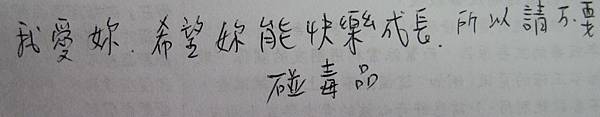 我愛妳.希望妳能快樂成長.所以請不要
碰毒品